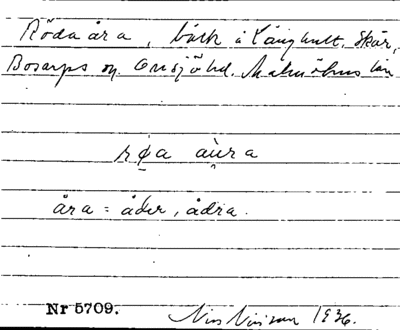 Röda åra, bäck å Långhult, Skår,
Bosarps sn. Onsjö hd. Malmöhus län
rø̨a au̯ra
åra = åder, ådra.
Nr 5709.
1936.